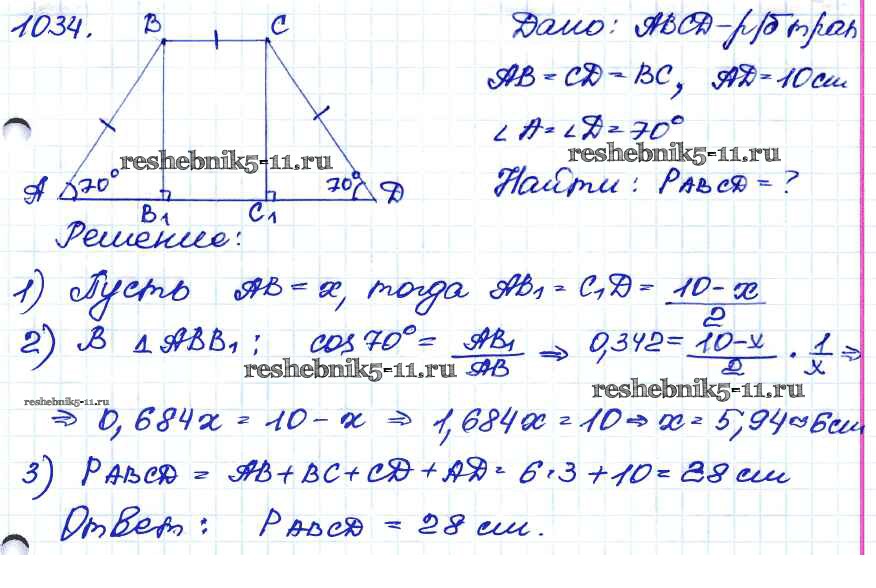 1034.
B C
Дано: ABCD – р/б трап
AB = CD = BC, AD = 10 см
∠A = ∠D = 70°
reshebnik5-11.ru
reshebnik5-11.ru
A 70° 70° D
Найти: P ABCD = ?
B1 C1
Решение:
1) Пусть AB = x, тогда AB1 = C1D = (10 - x)/2
2) В △ABB1: cos 70° = AB1/AB ⇒ 0,342 = (10 - x)/2 · 1/x ⇒
reshebnik5-11.ru
reshebnik5-11.ru
reshebnik5-11.ru
⇒ 0,684x = 10 - x ⇒ 1,684x = 10 ⇒ x = 5,94 ≈ 6 см
3) P ABCD = AB + BC + CD + AD = 6·3 + 10 = 28 см
Ответ: P ABCD = 28 см.